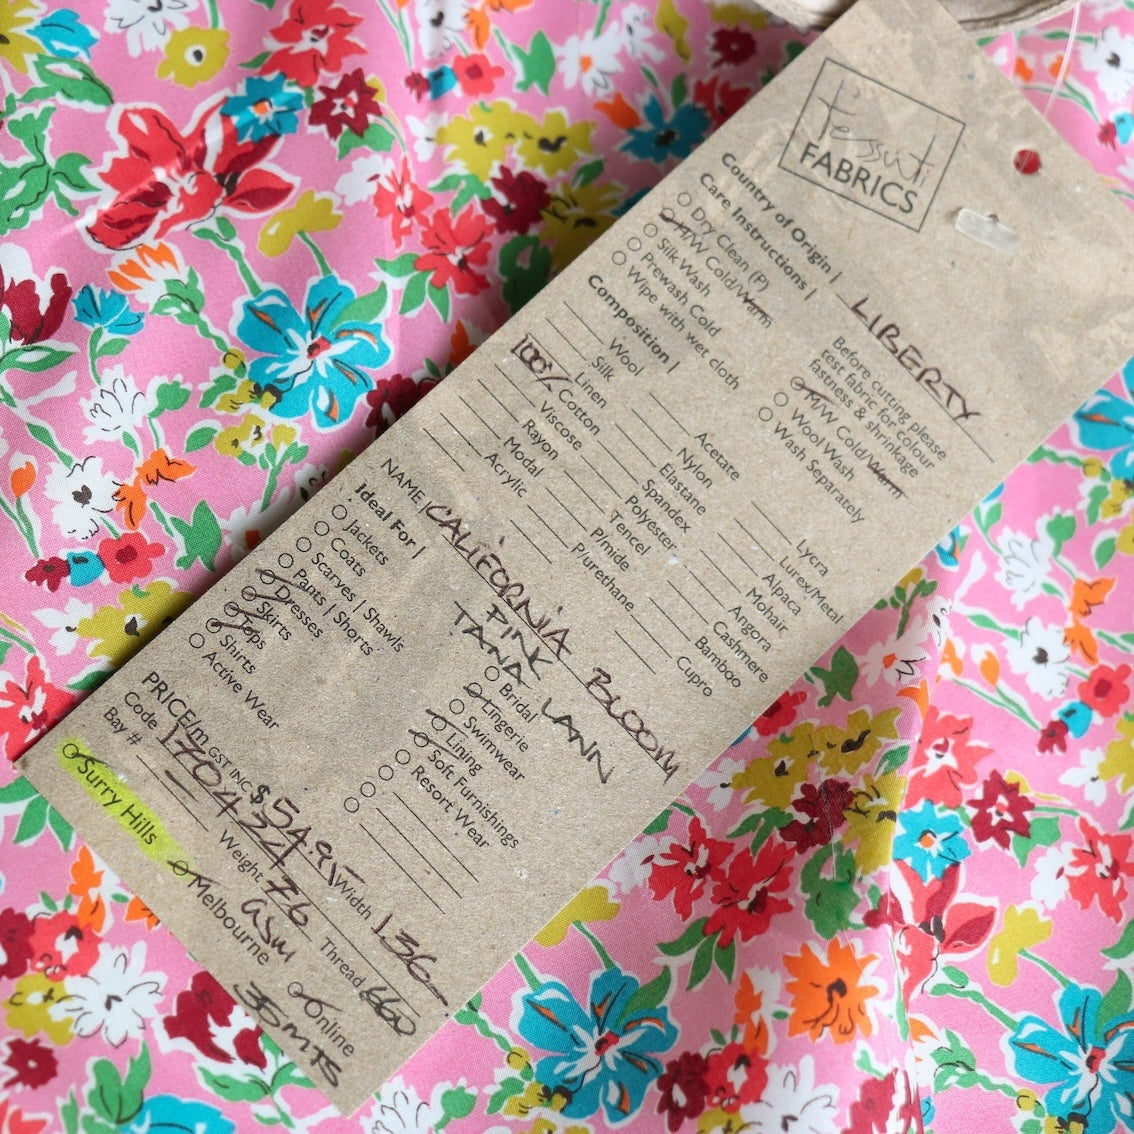 Tessuti
FABRICS
Country of Origin | LIBERTY
Care Instructions |
Dry Clean (P)
M/W Cold/Warm
Silk Wash
Prewash Cold
Wipe with wet cloth
Before cutting please
test fabric for colour
fastness & shrinkage
M/W Cold/Warm
Wool Wash
Wash Separately
Composition |
Wool
Silk
Linen
100% Cotton
Viscose
Rayon
Modal
Acrylic
Acetate
Nylon
Elastane
Spandex
Polyester
Tencel
P/mide
P/urethane
Lycra
Lurex/Metal
Alpaca
Mohair
Angora
Cashmere
Bamboo
Cupro
NAME | CALIFORNIA BLOOM
PINK
TANA LAWN
Ideal For |
Jackets
Coats
Scarves | Shawls
Pants | Shorts
Dresses
Skirts
Tops
Shirts
Active Wear
Bridal
Lingerie
Swimwear
Lining
Soft Furnishings
Resort Wear
PRICE/m GST INC $54.95 Width 136
Code 170434
Weight 76 Thread 660
Bay #
GSM
Surry Hills
Melbourne
Online
35MTS